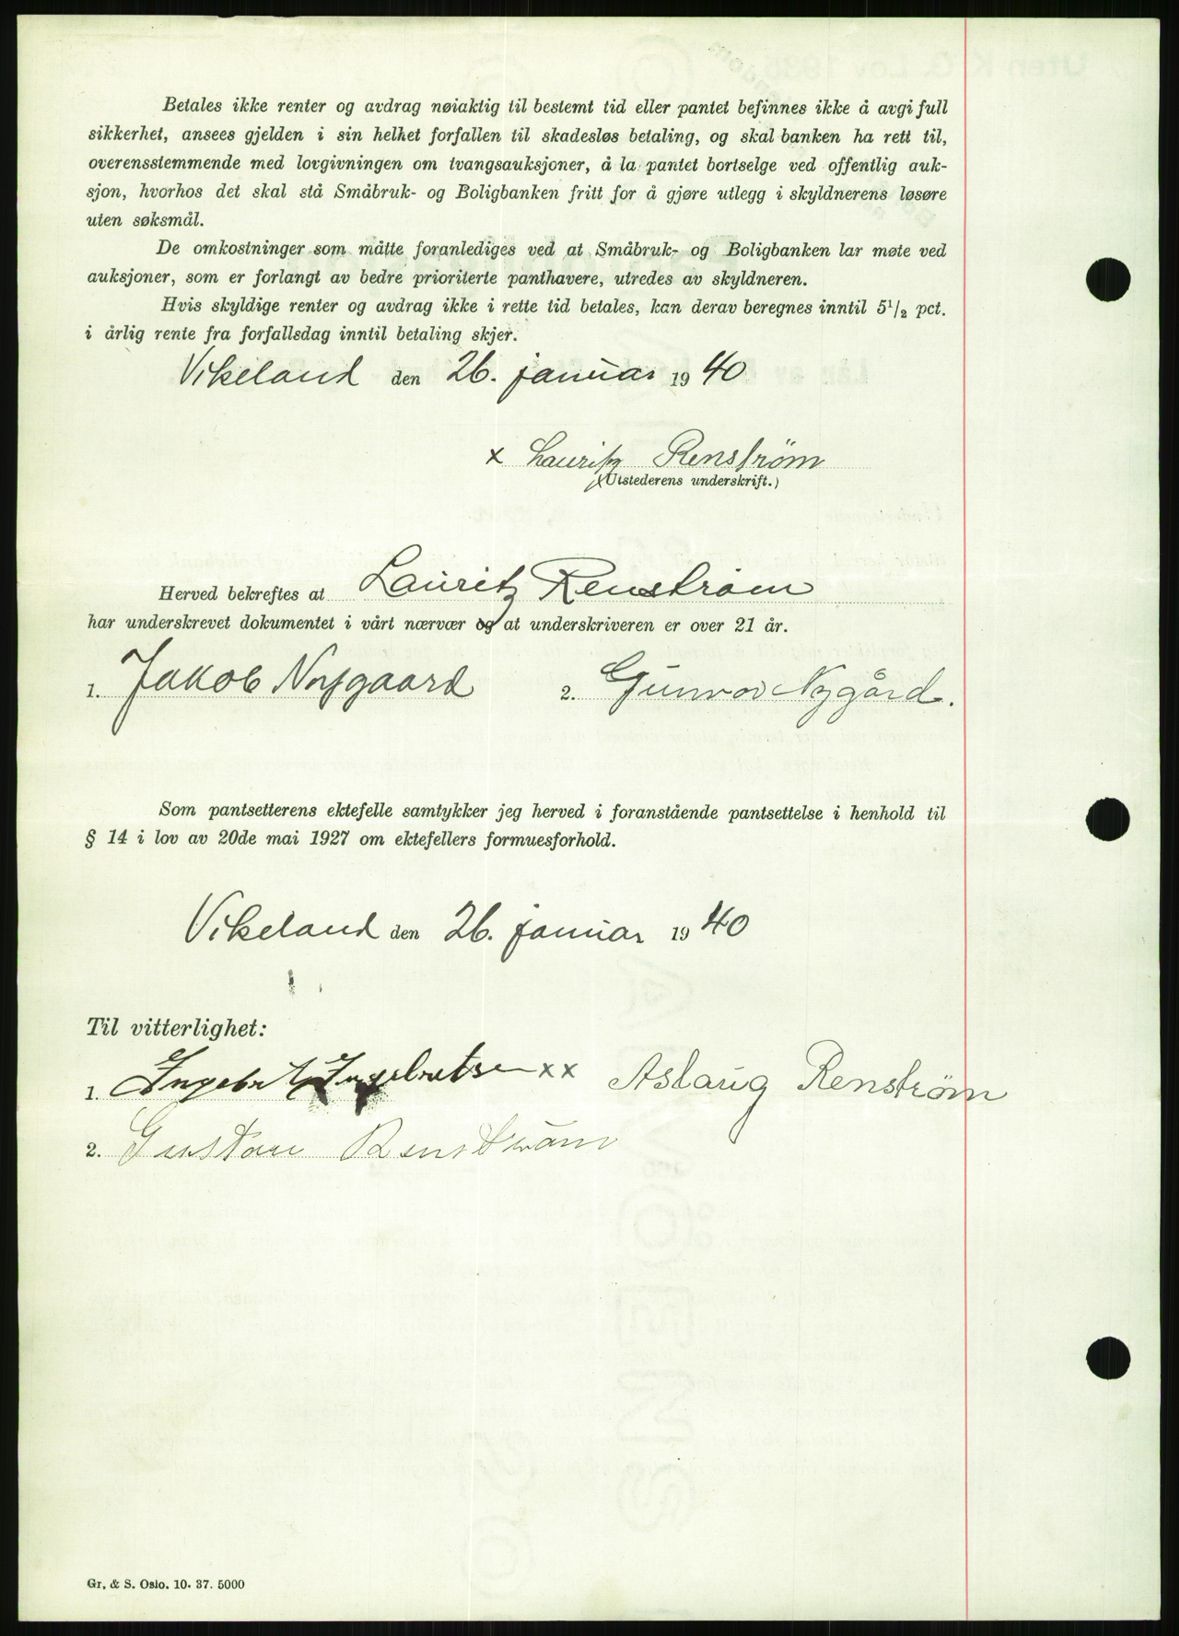 Betales ikke renter og avdrag nøiaktig til bestemt tid eller pantet befinnes ikke å avgi full
sikkerhet, ansees gjelden i sin helhet forfallen til skadesløs betaling, og skal banken ha rett til,
overensstemmende med lovgivningen om tvangsauksjoner, å la pantet bortselge ved offentlig auk-
sjon, hvorhos det skal stå Småbruk- og Boligbanken fritt for å gjøre utlegg i skyldnerens løsøre
uten søksmål.
De omkostninger som måtte foranlediges ved at Småbruk- og Boligbanken lar møte ved
auksjoner, som er forlangt av bedre prioriterte panthavere, utredes av skyldneren.
Hvis skyldige renter og avdrag ikke i rette tid betales, kan derav beregnes inntil 5 1/2 pct.
i årlig rente fra forfallsdag inntil betaling skjer.
Vikeland den 26. januar 1940
x Lauritz Renstrøm
(Utstederens underskrift.)
Herved bekreftes at Lauritz Renstrøm
har underskrevet dokumentet i vårt nærvær og at underskriveren er over 21 år.
1. Jakob Nygaard 2. Gunvor Nygård.
Som pantsetterens ektefelle samtykker jeg herved i foranstående pantsettelse i henhold til
§ 14 i lov av 20de mai 1927 om ektefellers formuesforhold.
Vikeland den 26. januar 1940
Til vitterlighet:
1. Ingebr Ingebretsen xx Aslaug Renstrøm
2. Gustav Renstrøm
Gr. & S. Oslo. 10. 37. 5000